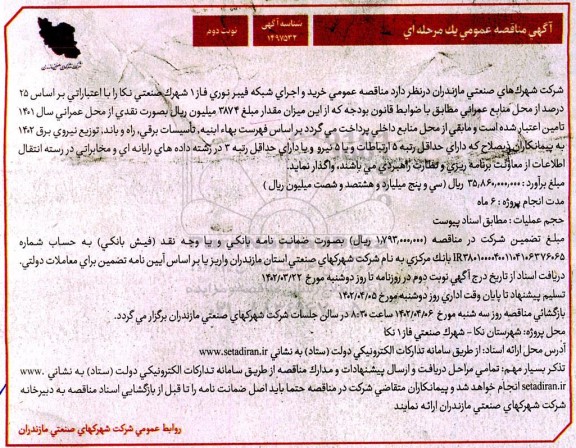 آگهي مناقصه عمومي يك مرحله اي
شناسه آگهي
۱۴۹۷۵۳۲
نوبت دوم
شركت شهركهاي صنعتي مازندران
شركت شهرك هاي صنعتي مازندران درنظر دارد مناقصه عمومي خريد و اجراي شبكه فيبر نوري فاز ۱ شهرك صنعتي نكا را با اعتباراتي بر اساس ۲۵
درصد از محل منابع عمراني مطابق با ضوابط قانون بودجه كه از اين ميزان مقدار مبلغ ۳۸۷۴ ميليون ريال بصورت نقدي از محل عمراني سال ۱۴۰۱
تامين اعتبار شده است و مابقي از محل منابع داخلي پرداخت مي گردد بر اساس فهرست بهاء ابنيه، تأسيسات برقي، راه و باند، توزيع نيروي برق ۱۴۰۲
به پيمانكاران ذيصلاح كه داراي حداقل رتبه ۵ ارتباطات و يا ۵ نيرو و يا داراي حداقل رتبه ۳ در رشته داده هاي رايانه اي و مخابراتي در رسته انتقال
اطلاعات از معاونت برنامه ريزي و نظارت راهبردي مي باشند، واگذار نمايد.
مبلغ برآورد : ۳۵,۸۶۰,۰۰۰,۰۰۰ ريال (سي و پنج ميليارد و هشتصد و شصت ميليون ريال )
مدت انجام پروژه : ۶ ماه
حجم عمليات : مطابق اسناد پيوست
مبلغ تضمين شركت در مناقصه (۱,۷۹۳,۰۰۰,۰۰۰ ريال) بصورت ضمانت نامه بانكي و يا وجه نقد (فيش بانكي) به حساب شماره
IR۳۸۰۱۰۰۰۰۴۰۰۱۱۰۴۱۰۶۳۷۶۰۶۵ بانك مركزي به نام شركت شهركهاي صنعتي استان مازندران واريز يا بر اساس آيين نامه تضمين براي معاملات دولتي.
دريافت اسناد از تاريخ درج آگهي نوبت دوم در روزنامه تا روز دوشنبه مورخ ۱۴۰۲/۰۳/۲۲
تسليم پيشنهاد تا پايان وقت اداري روز دوشنبه مورخ ۱۴۰۲/۰۴/۰۵
بازگشائي مناقصه روز سه شنبه مورخ ۱۴۰۲/۰۴/۰۶ ساعت ۸:۳۰ در سالن جلسات شركت شهركهاي صنعتي مازندران برگزار مي گردد.
محل پروژه: شهرستان نكا - شهرك صنعتي فاز ۱ نكا
آدرس محل ارائه اسناد: از طريق سامانه تداركات الكترونيكي دولت (ستاد) به نشاني www.setadiran.ir
تذكر بسيار مهم: تمامي مراحل دريافت و ارسال پيشنهادات و مدارك مناقصه از طريق سامانه تداركات الكترونيكي دولت (ستاد) به نشاني www.
setadiran.ir انجام خواهد شد و پيمانكاران متقاضي شركت در مناقصه حتما بايد اصل ضمانت نامه را تا قبل از بازگشايي اسناد مناقصه به دبيرخانه
شركت شهركهاي صنعتي مازندران ارائه نمايند
روابط عمومي شركت شهركهاي صنعتي مازندران